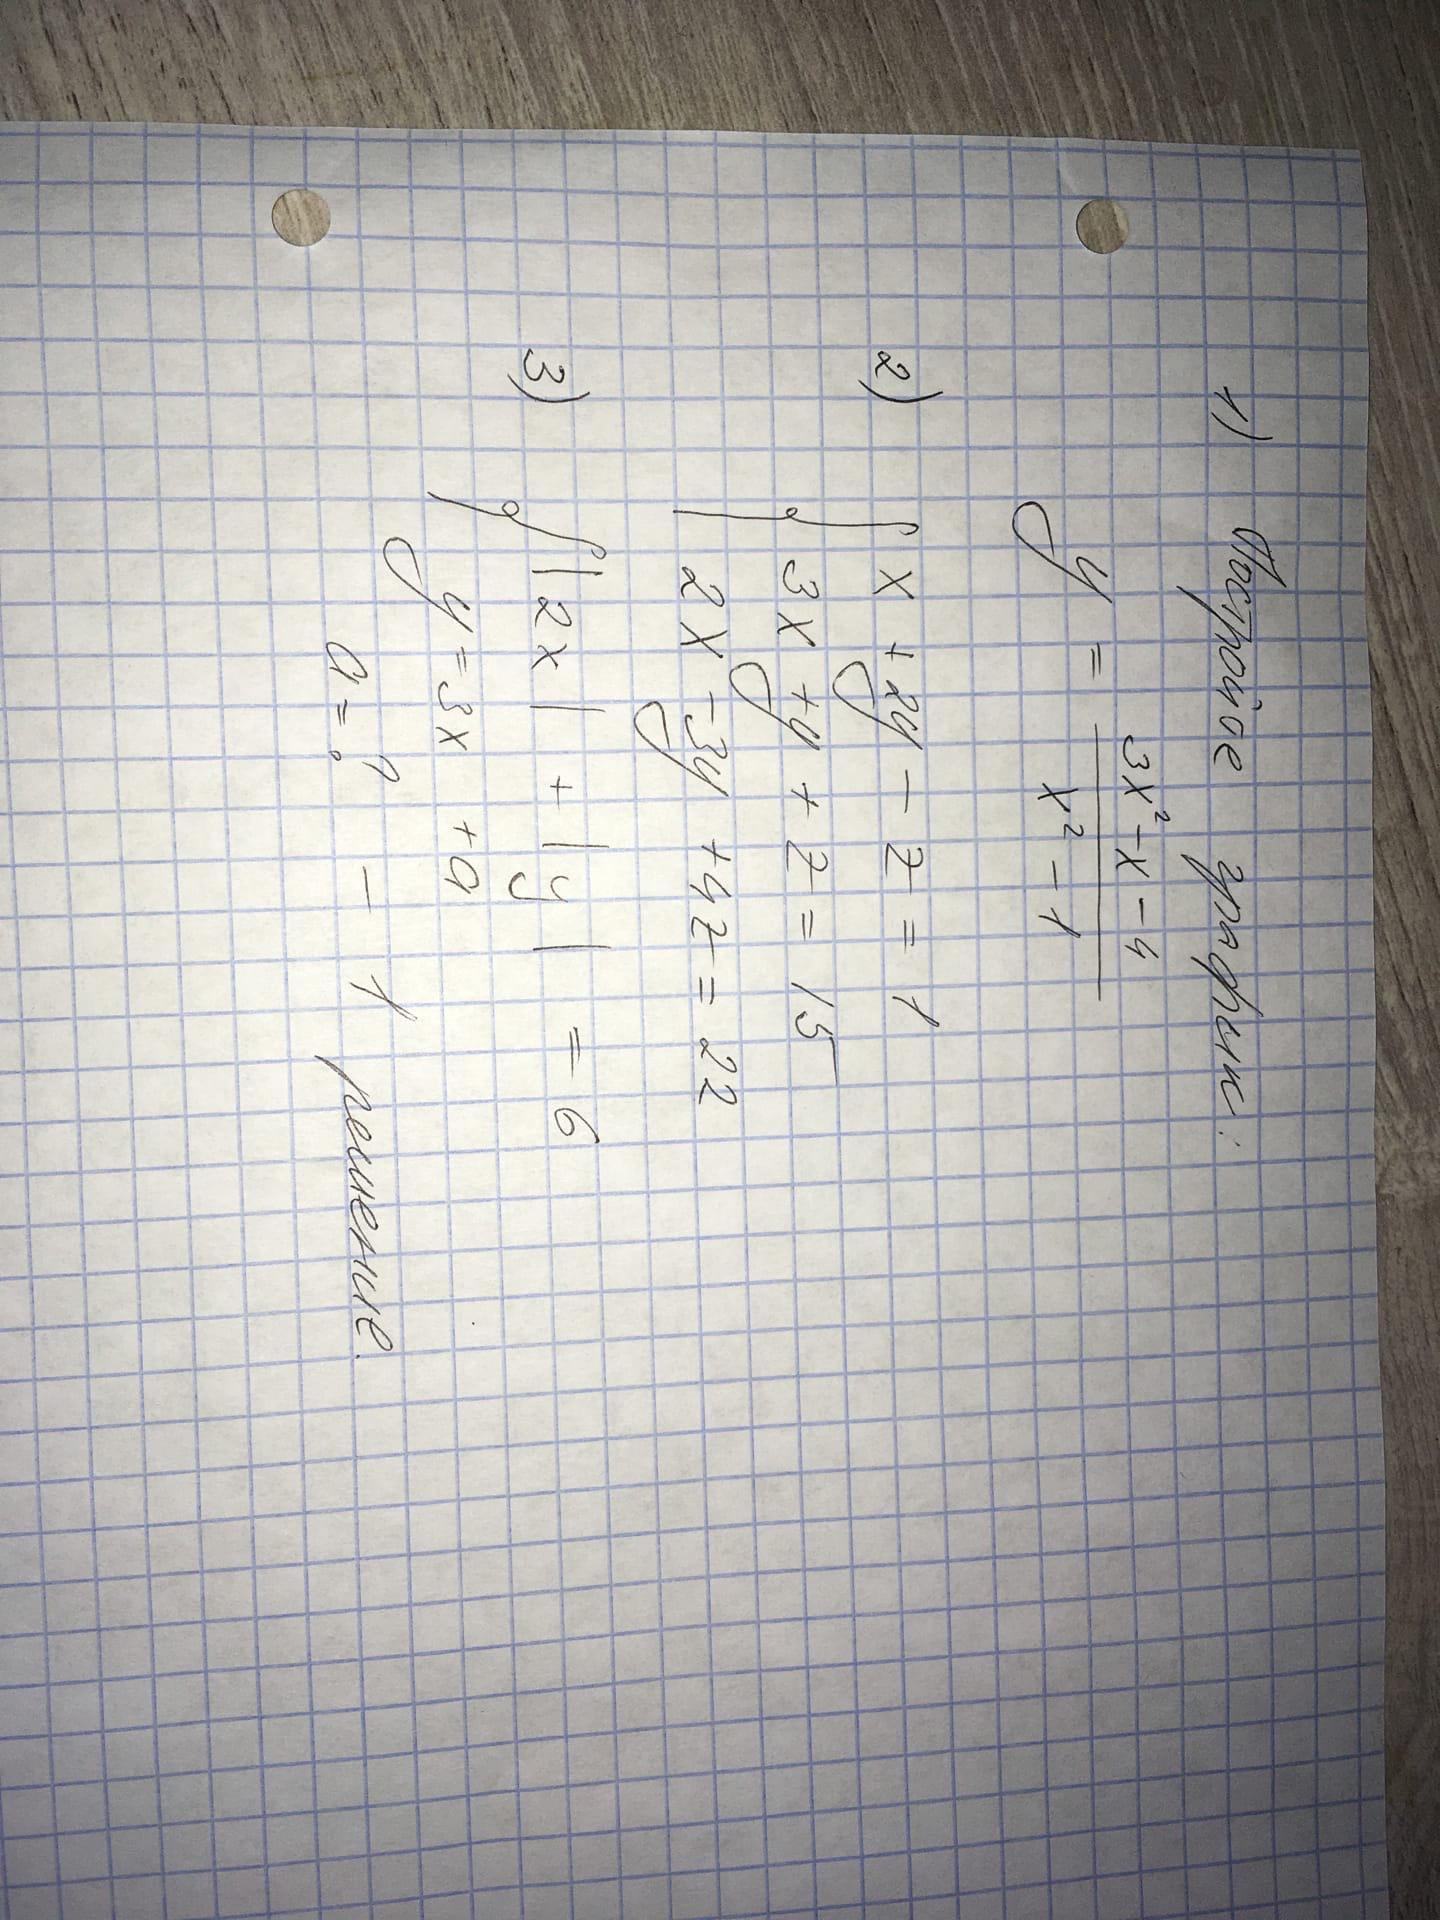 1) Постройте график:
y = (3x² - x - 4) / (x² - 1)
2) { x + 2y - z = 1
3x + y + z = 15
2x - 3y + 4z = 22
3) { |2x| + |y| = 6
y = 3x + a
a = ? - 1 решение.